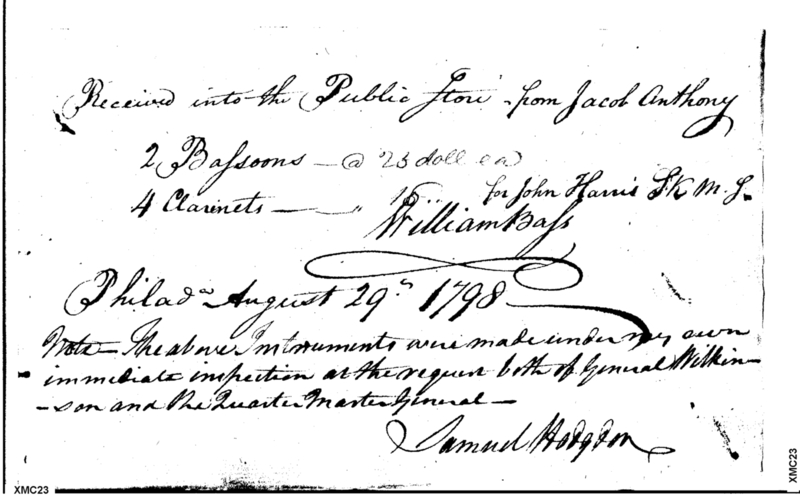 Received into the Public Store from Jacob Anthony
2 Bassoons — @ 25 doll ea
4 Clarinets — — " 15 ... for John Harris SK M. S.
William Bass
Philada August 29th 1798
Note — The above Instruments were made under my own
immediate inspection at the request both of General Wilkin-
-son and the Quarter Master General —
Samuel Hodgdon
XMC23
XMC23